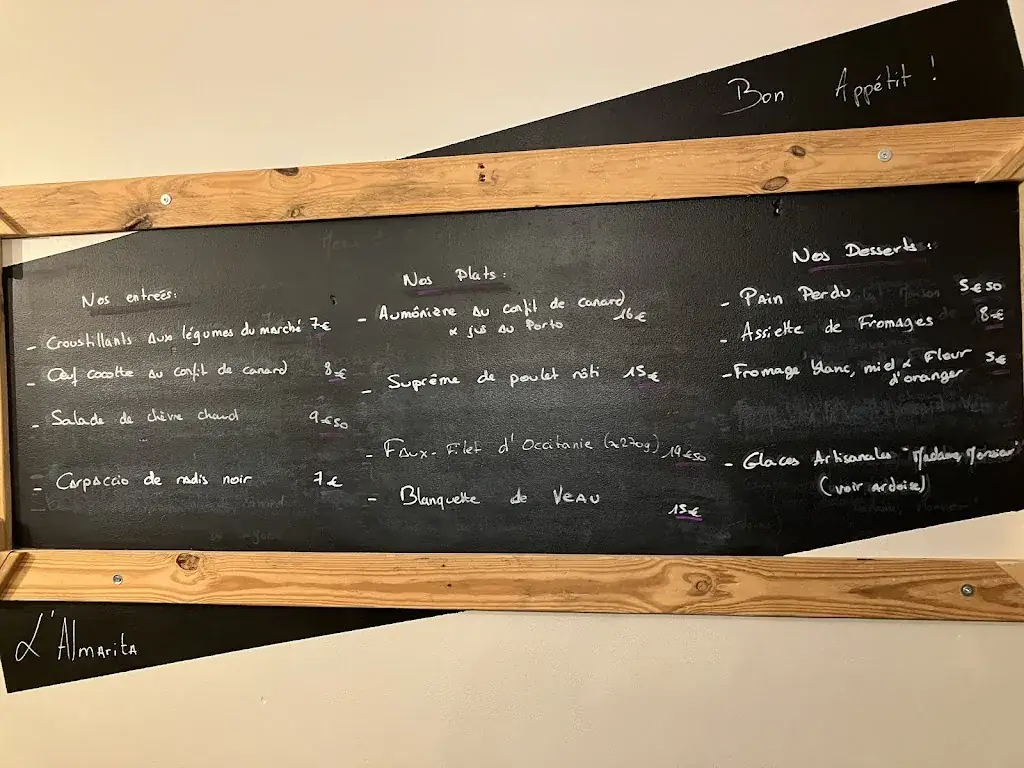 Bon Appétit !
Nos entrées:
- Croustillants aux légumes du marché 7€
- Œuf cocotte au confit de canard 8€
- Salade de chèvre chaud 9€50
- Carpaccio de radis noir 7€
Nos Plats:
- Aumônière au confit de canard
& jus au Porto 16€
- Suprême de poulet rôti 15€
- Faux-Filet d'Occitanie (≈270g) 19€50
- Blanquette de Veau
15€
Nos Desserts:
- Pain Perdu 5€50
- Assiette de Fromages 8€
- Fromage blanc, miel & Fleur
d'oranger 5€
- Glaces Artisanales "Madame
(voir ardoise)
L'Almarita